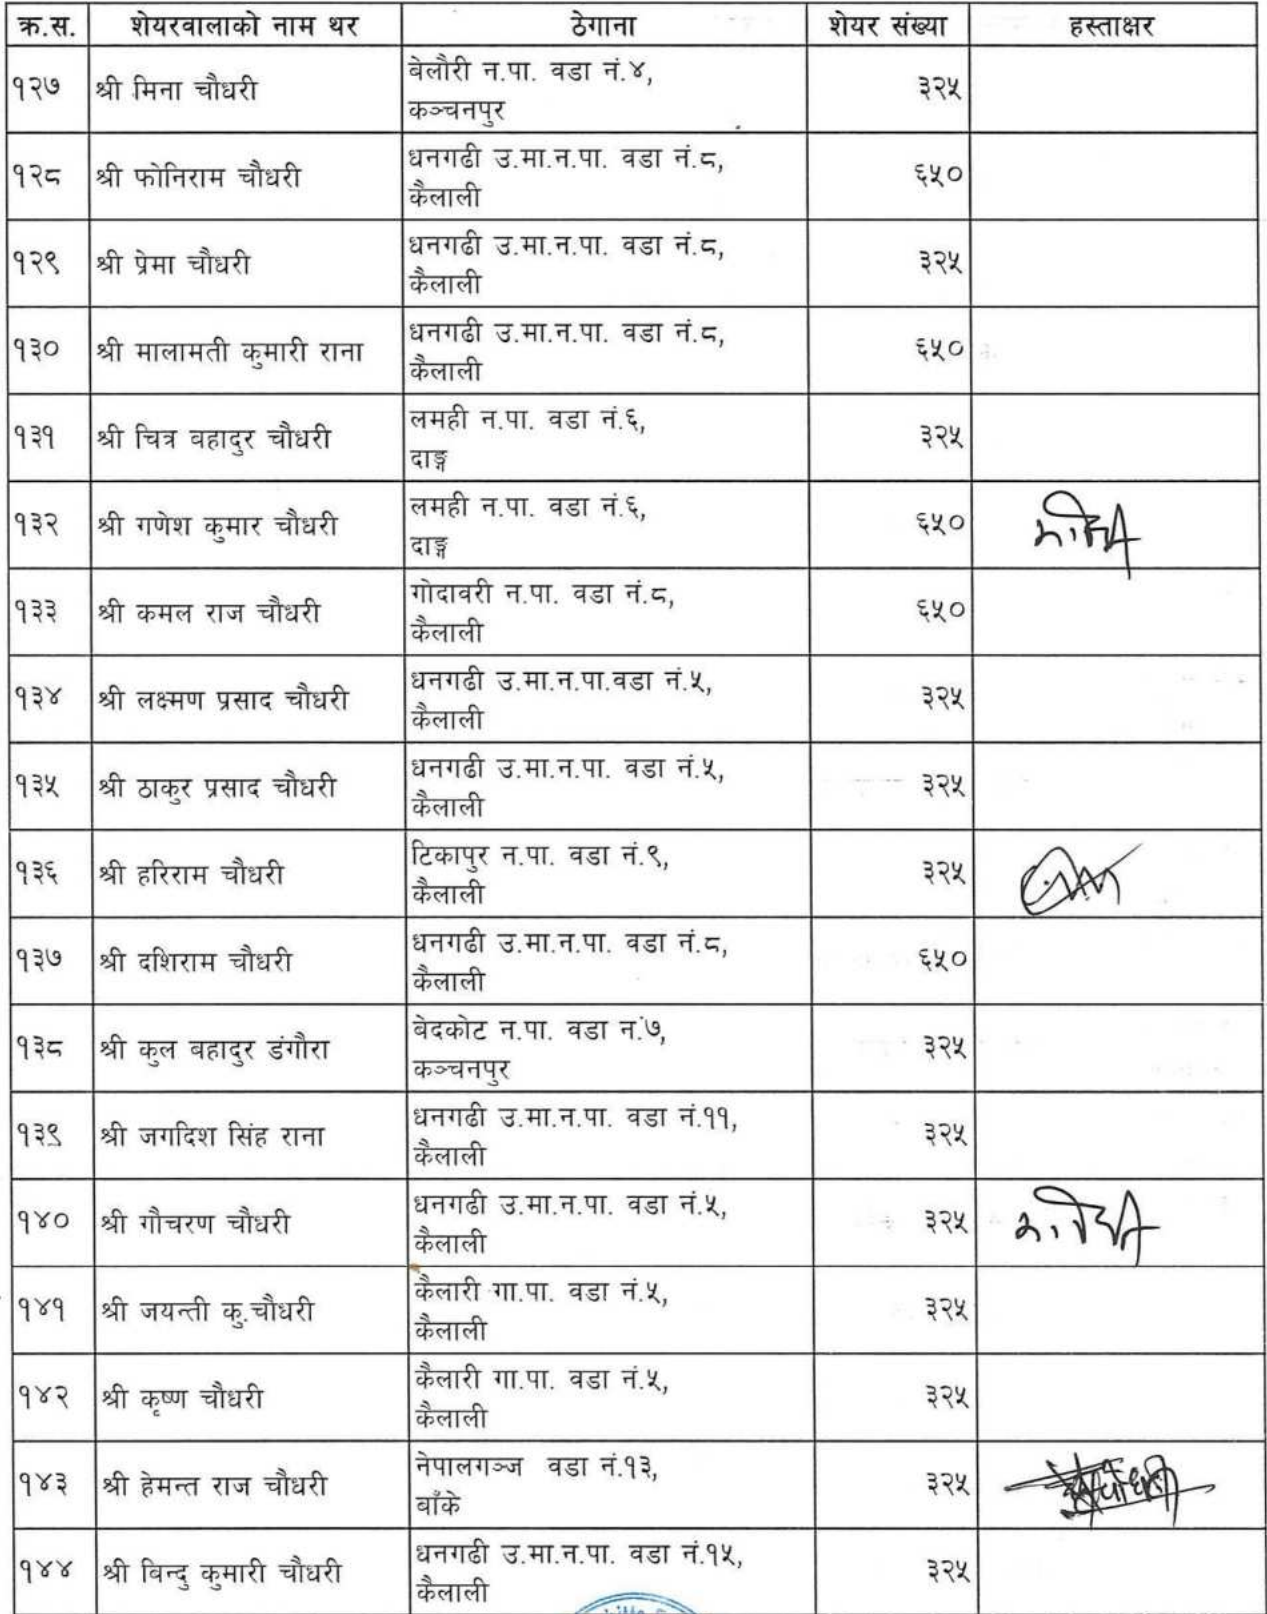 क्र.स. शेयरवालाको नाम थर ठेगाना शेयर संख्या हस्ताक्षर
१२७ श्री मिना चौधरी बेलौरी न.पा. वडा नं.४, ३२५
कञ्चनपुर
१२८ श्री फोनिराम चौधरी धनगढी उ.मा.न.पा. वडा नं.८, ६५०
कैलाली
१२९ श्री प्रेमा चौधरी धनगढी उ.मा.न.पा. वडा नं.८, ३२५
कैलाली
१३० श्री मालामती कुमारी राना धनगढी उ.मा.न.पा. वडा नं.८, ६५०
कैलाली
१३१ श्री चित्र बहादुर चौधरी लमही न.पा. वडा नं.६, ३२५
दाङ्ग
१३२ श्री गणेश कुमार चौधरी लमही न.पा. वडा नं.६, ६५०
दाङ्ग
१३३ श्री कमल राज चौधरी गोदावरी न.पा. वडा नं.८, ६५०
कैलाली
१३४ श्री लक्ष्मण प्रसाद चौधरी धनगढी उ.मा.न.पा.वडा नं.५, ३२५
कैलाली
१३५ श्री ठाकुर प्रसाद चौधरी धनगढी उ.मा.न.पा. वडा नं.५, ३२५
कैलाली
१३६ श्री हरिराम चौधरी टिकापुर न.पा. वडा नं.९, ३२५
कैलाली
१३७ श्री दशिराम चौधरी धनगढी उ.मा.न.पा. वडा नं.८, ६५०
कैलाली
१३८ श्री कुल बहादुर डंगौरा बेदकोट न.पा. वडा नं७, ३२५
कञ्चनपुर
१३९ श्री जगदिश सिंह राना धनगढी उ.मा.न.पा. वडा नं.११, ३२५
कैलाली
१४० श्री गौचरण चौधरी धनगढी उ.मा.न.पा. वडा नं.५, ३२५
कैलाली
१४१ श्री जयन्ती कु.चौधरी कैलारी गा.पा. वडा नं.५, ३२५
कैलाली
१४२ श्री कृष्ण चौधरी कैलारी गा.पा. वडा नं.५, ३२५
कैलाली
१४३ श्री हेमन्त राज चौधरी नेपालगञ्ज वडा नं.१३, ३२५
बाँके
१४४ श्री बिन्दु कुमारी चौधरी धनगढी उ.मा.न.पा. वडा नं.१५, ३२५
कैलाली